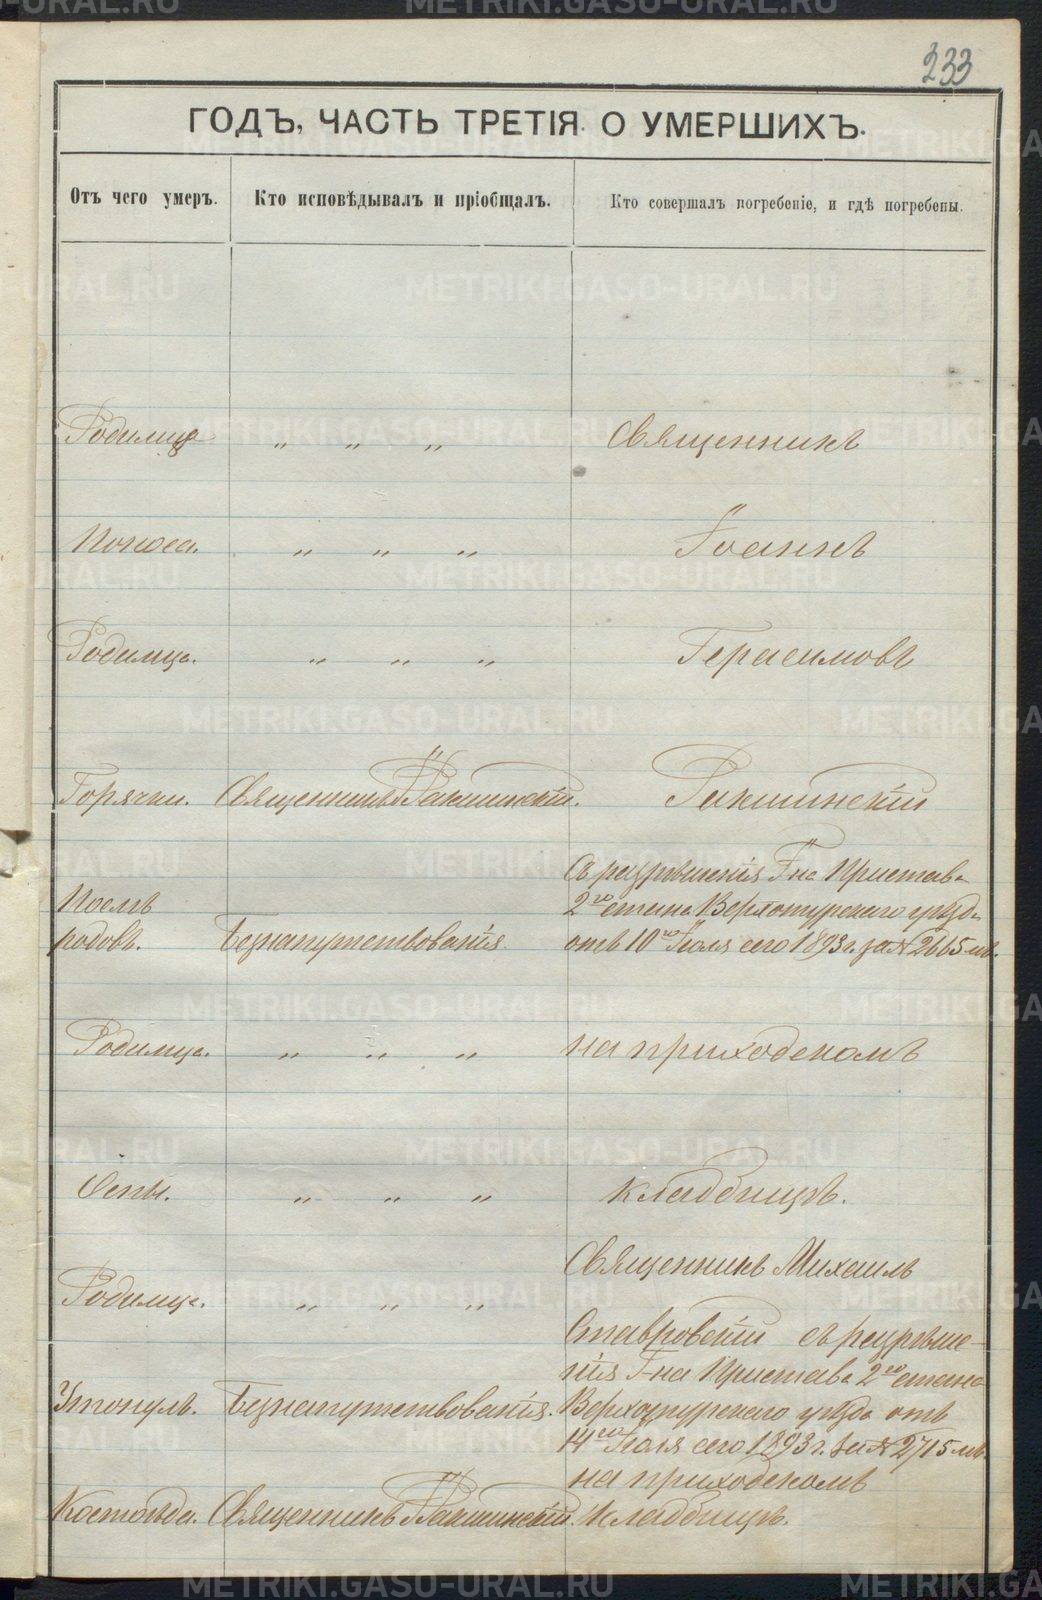 233
ГОДЪ, ЧАСТЬ ТРЕТІЯ О УМЕРШИХЪ.
Отъ чего умеръ. Кто исповѣдывалъ и пріобщалъ. Кто совершалъ погребеніе, и гдѣ погребены.
Родимца „ „ „ Священникъ
Поноса. „ „ „ Іоаннъ
Родимца. „ „ „ Герасимовъ
Горячки. Священникъ Ракшинскій. Ракшинскій
Съ разрѣшенія Г-на Пристава
Послѣ 2го стана Верхотурскаго уѣзда
родовъ. Безнапутствованія. отъ 10го Іюля сего 1893 г. за № 2665мъ.
Родимца. „ „ „ на приходскомъ
Оспы. „ „ „ кладбищѣ.
Священникъ Михаилъ
Родимца. „ „ „
Ставровскій съ разрѣше-
нія Г-на Пристава 2го стана
Утонулъ. Безнапутствованія. Верхотурскаго уѣзда отъ
14го Іюля сего 1893 г. за № 2715мъ.
на приходскомъ
Костоѣда. Священникъ Ракшинскій. кладбищѣ.
METRIKI.GASO-URAL.RU